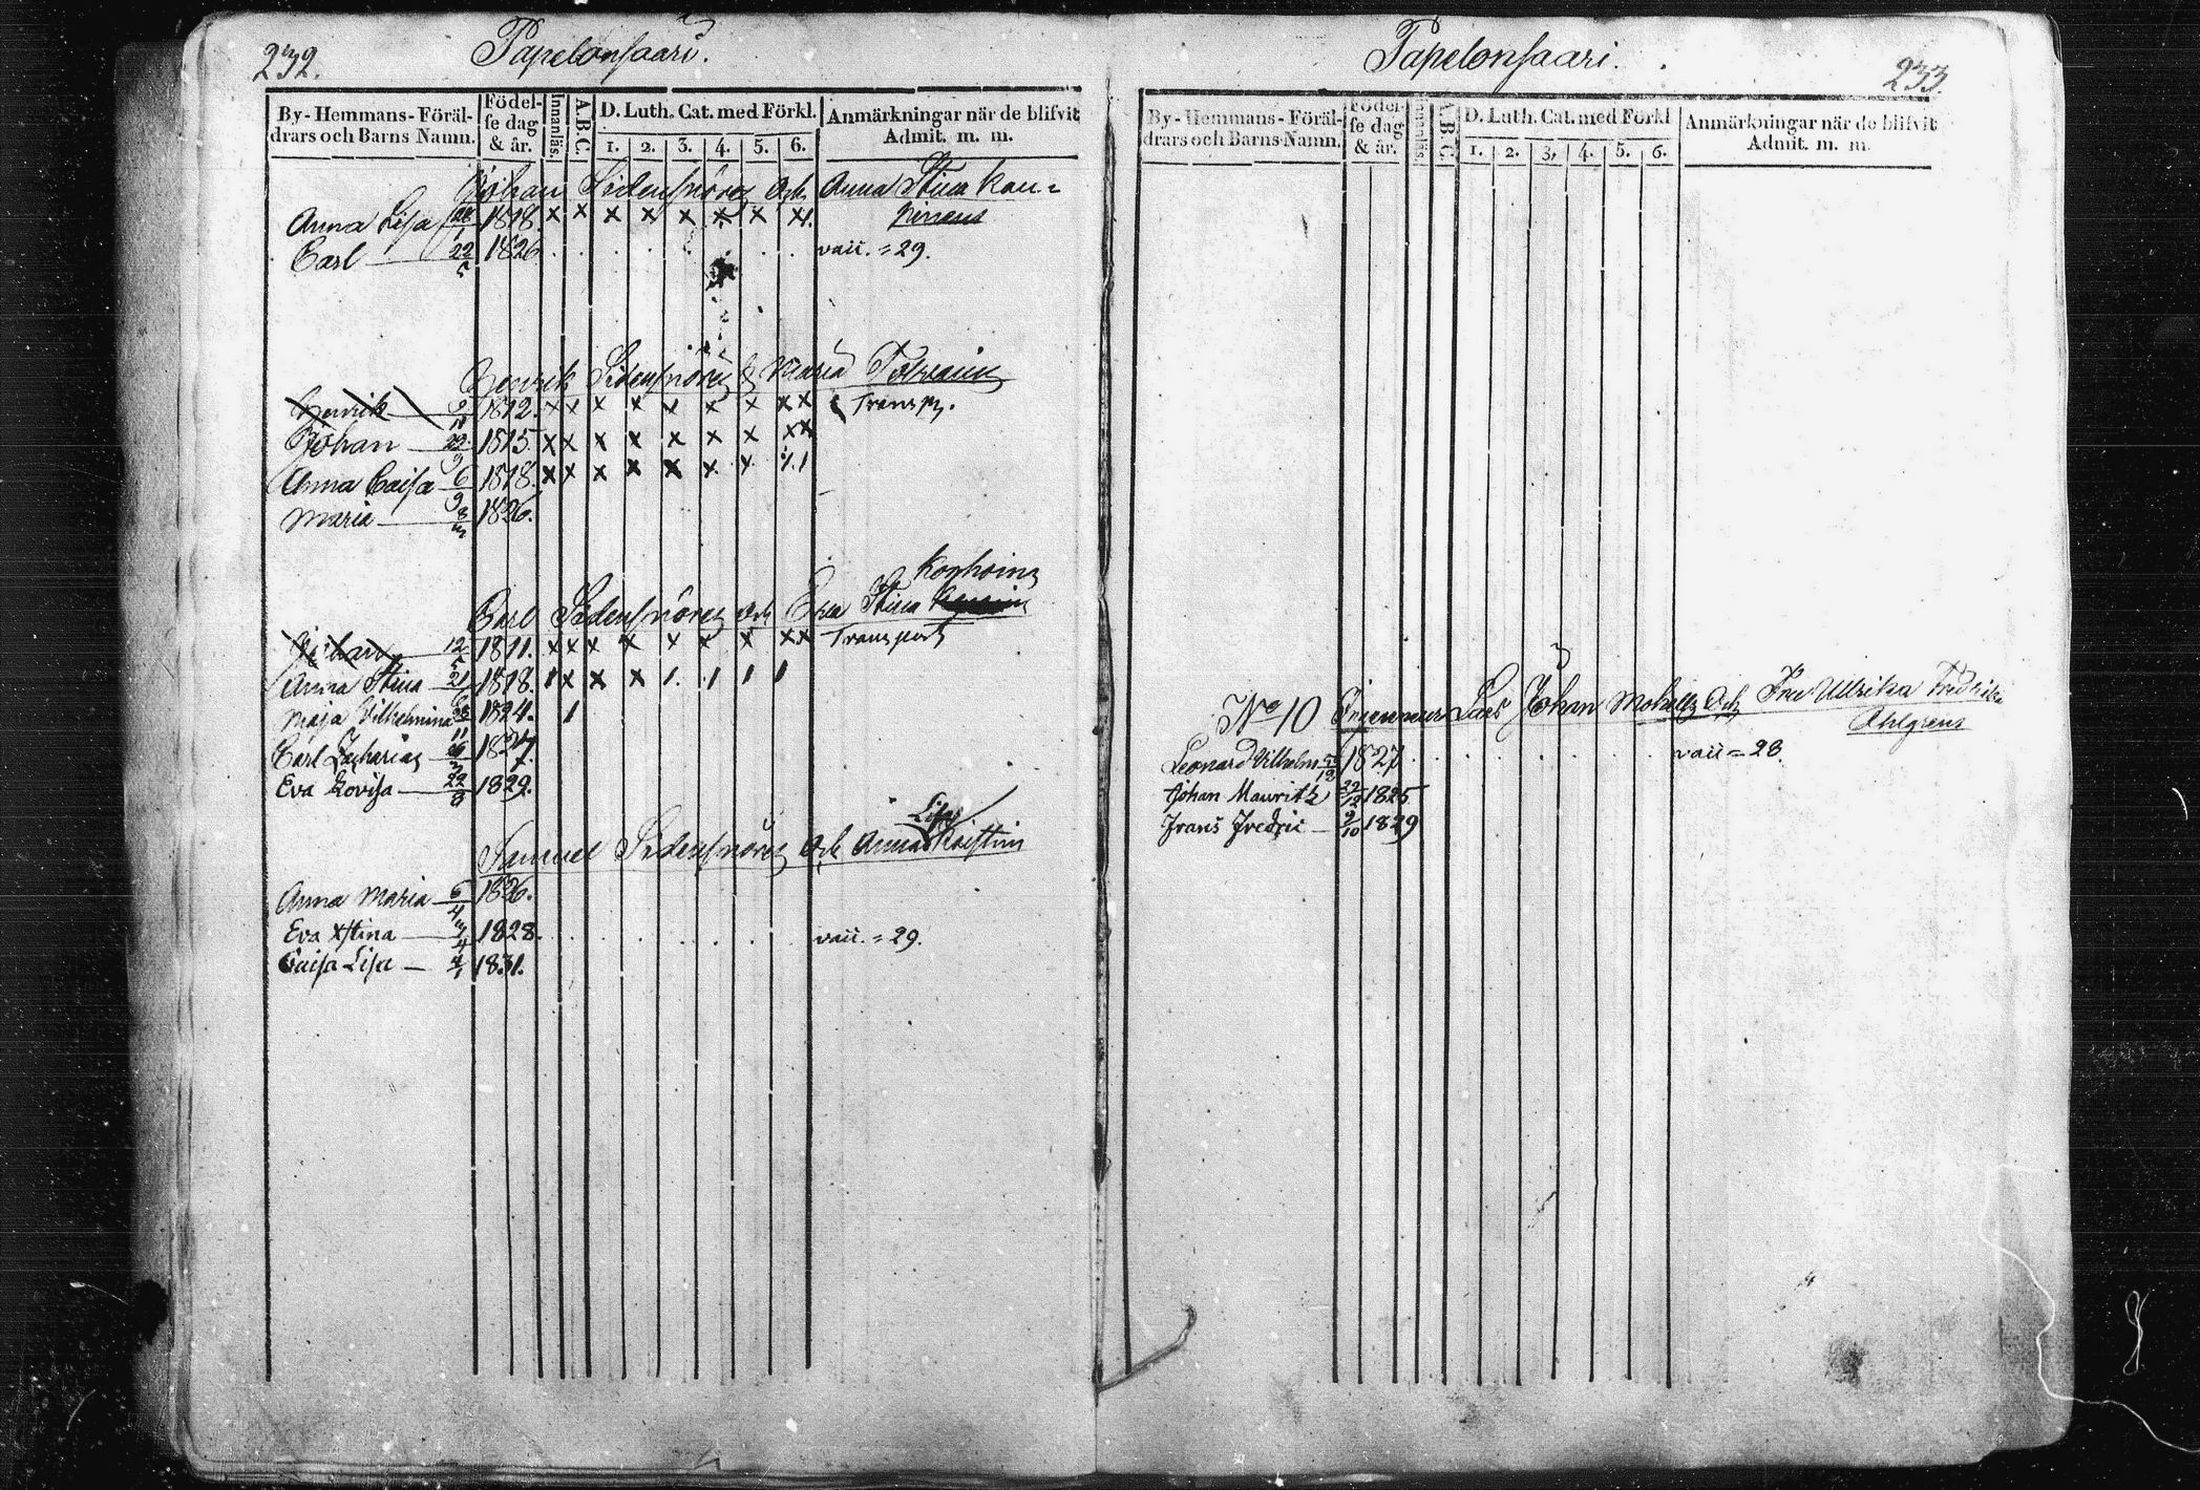 232.
Papelonsaari.
By-Hemmans-Föräl-
drars och Barns Namn.
Födel-
se dag
& år.
Innanläs.
A.B.C.
D. Luth. Cat. med Förkl.
1. 2. 3. 4. 5. 6.
Anmärkningar när de blifvit
Admit. m. m.
Johan Sidensnöre och Anna Stina
Anna Lisa 1818. x x x x x x x
Carl 22/5 1826. vacc. = 29.
Henrik Sidensnöre & Maria
Henrik 1812. x x x x x x x x x Transp.
Johan 1815. x x x x x x x x x
Anna Caisa 6/9 1818. x x x x x x x
Maria 8/3 1826.
Korhoin
Carl Sidensnöre och Eva Stina
Johan 12/5 1811. x x x x x x x x x Transport
Anna Stina 21/6 1818. 1 x x x 1. 1 1 1
Maja Vilhelmina 1824. 1
Carl Zacharias 1827.
Eva Lovisa 22/8 1829.
Lisa
Samuel Sidensnöre och Anna
Anna Maria 6/4 1826.
Eva Xstina 3/4 1828. vacc. = 29.
Caisa Lisa 4/1 1831.
Papelonsaari.
233.
By-Hemmans-Föräl-
drars och Barns Namn.
Födel-
se dag
& år.
Innanläs
A.B.C.
D. Luth. Cat. med Förkl
1. 2. 3. 4. 5. 6.
Anmärkningar när de blifvit
Admit. m. m.
No 10 Ingenieur Lars Johan Och Fru Ullrika Fredrika
Ahlgrens
Leonard Vilhelm 1827 vacc = 28.
Johan Mauritz 22/12 1825
Frans Fredric 9/10 1829